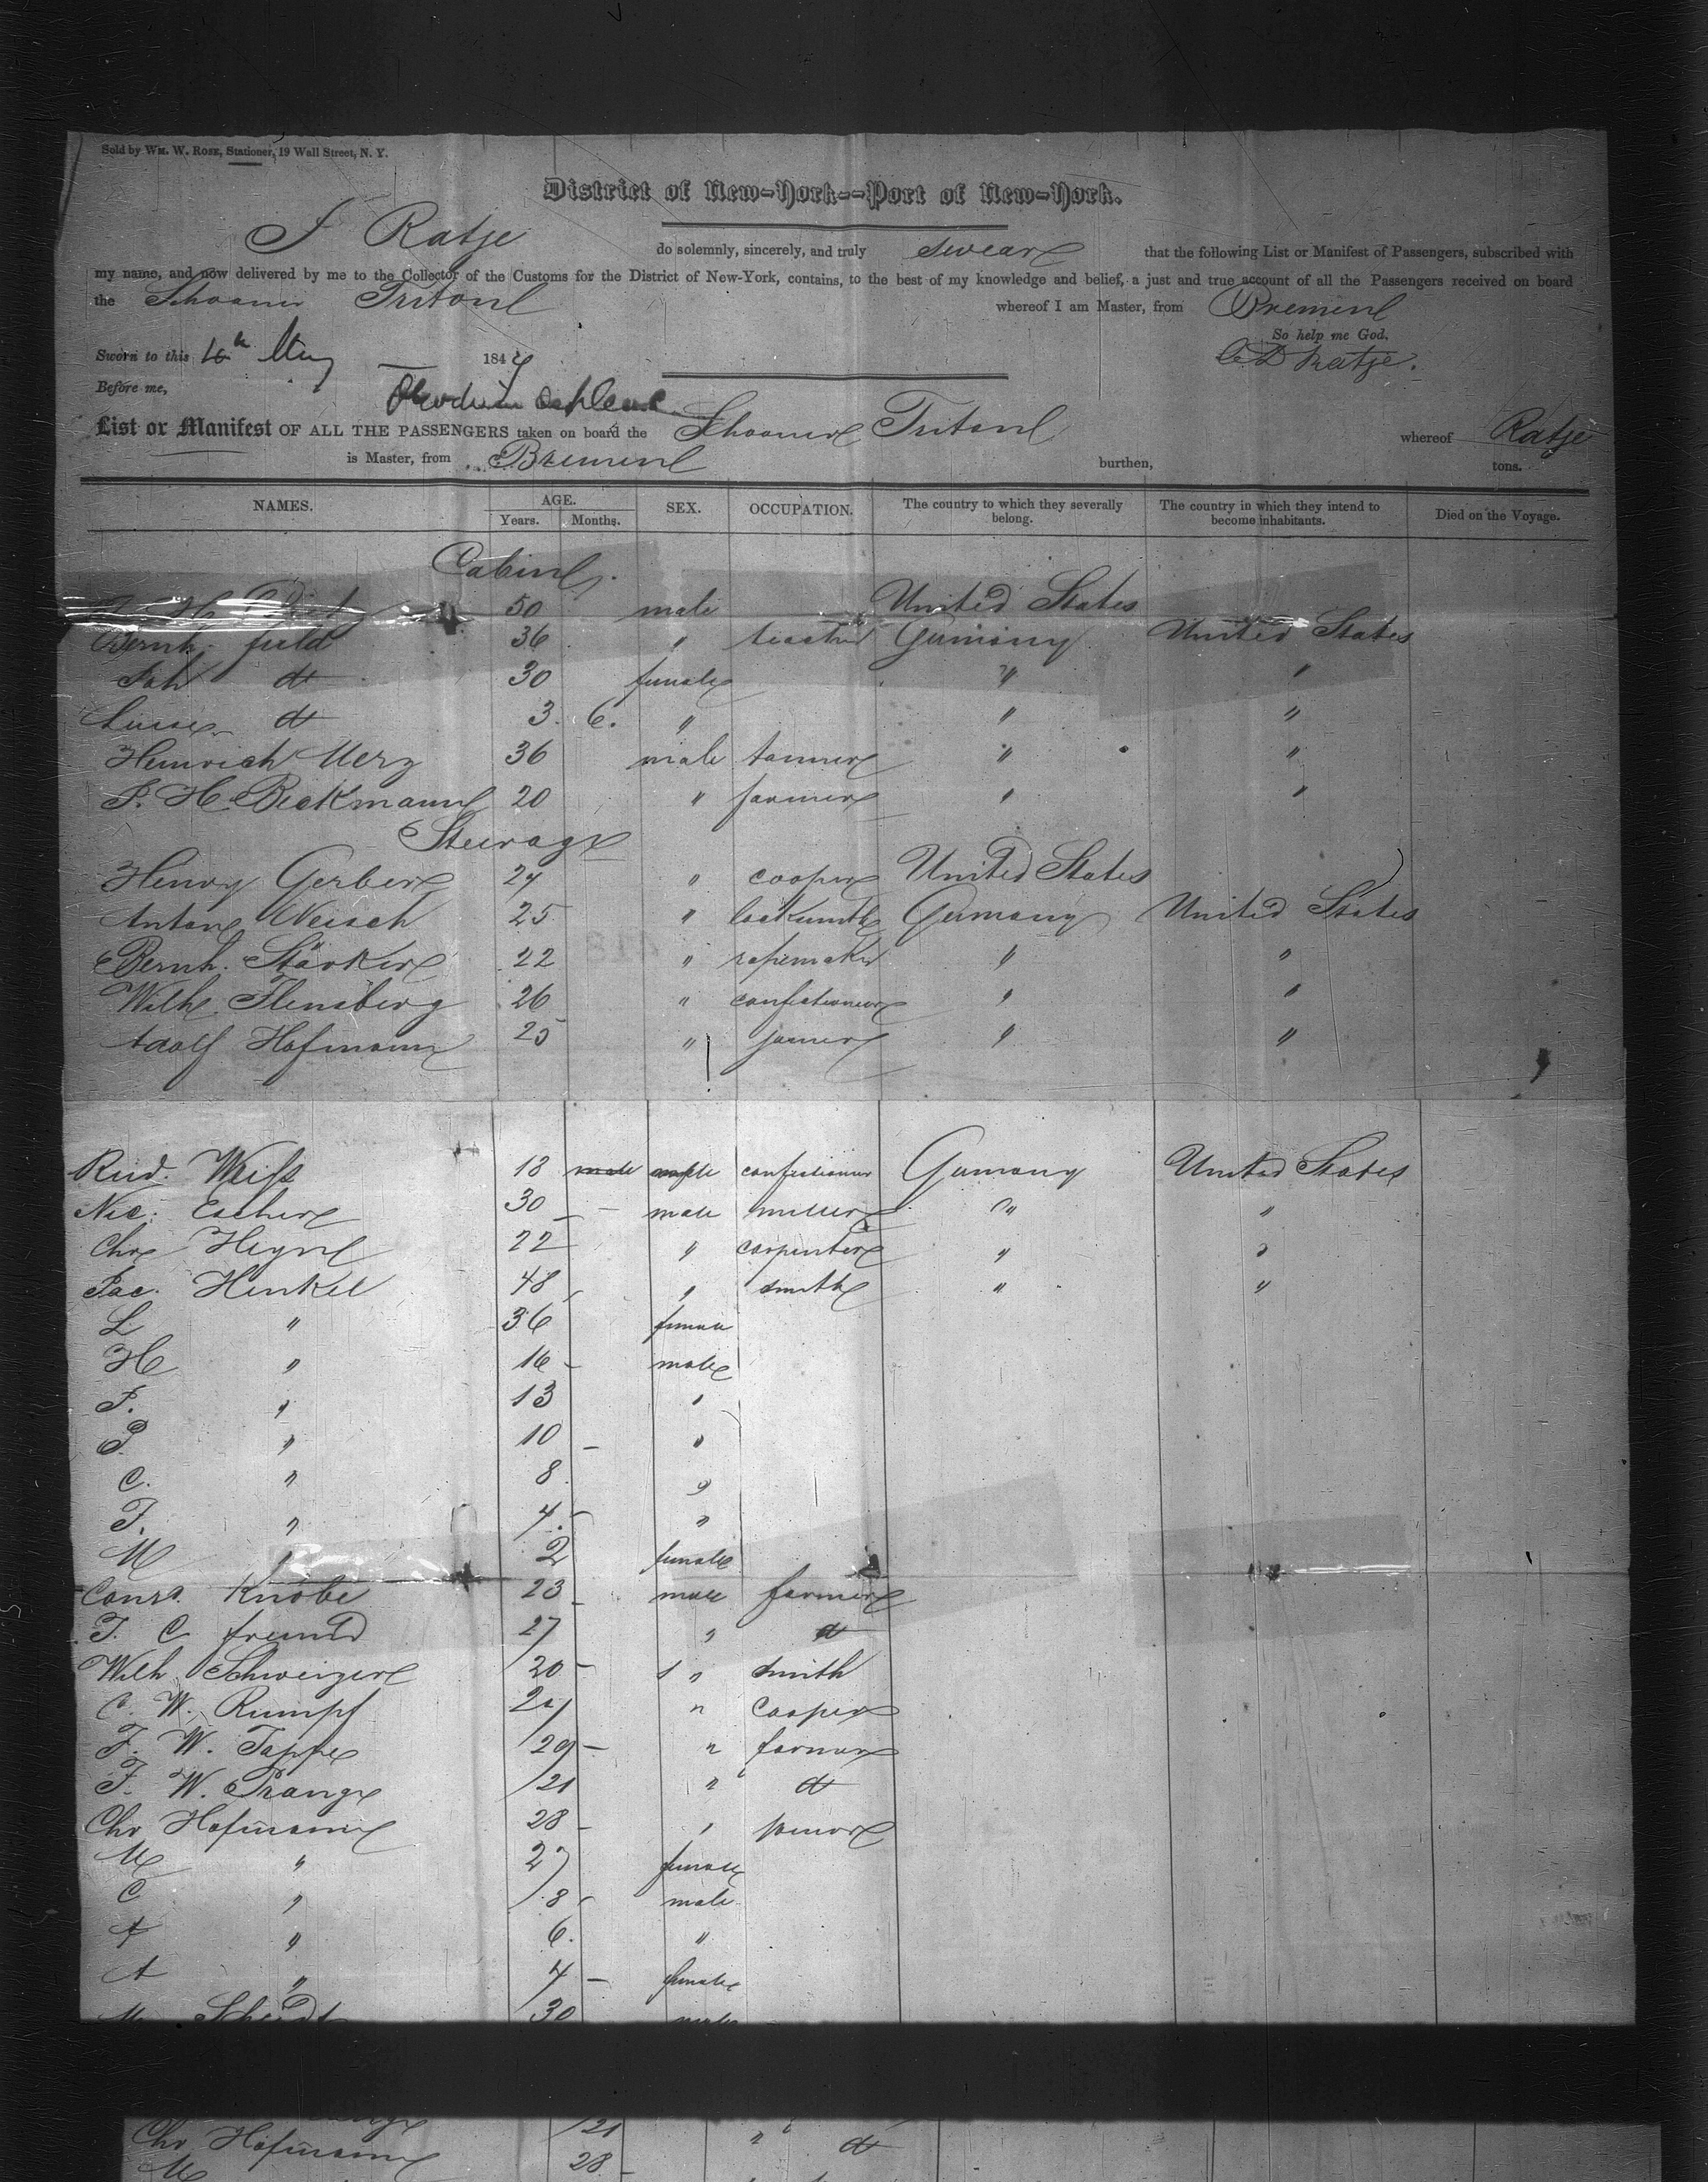 Sold by Wm. W. Rose, Stationer, 19 Wall Street, N. Y.
District of New-York--Port of New-York.
I Ratje do solemnly, sincerely, and truly swear that the following List or Manifest of Passengers, subscribed with
my name, and now delivered by me to the Collector of the Customs for the District of New-York, contains, to the best of my knowledge and belief, a just and true account of all the Passengers received on board
the Schooner Triton whereof I am Master, from Bremen
So help me God.
Sworn to this 10th May 1847 Ratje.
Before me,
List or Manifest OF ALL THE PASSENGERS taken on board the Schooner Triton whereof Ratje
is Master, from Bremen burthen, tons.
NAMES. AGE. SEX. OCCUPATION. The country to which they severally belong. The country in which they intend to become inhabitants. Died on the Voyage.
Years. Months.
Cabin.
50 male United States
Bernh. feld 36 " teacher Germany United States
do 30 female " "
do 3. 6. " " "
Heinrich Merz 36 male tanner " "
J. H. Beckmann 20 " farmer " "
Steerage
Henry Gerber 27 " cooper United States
Anton Weisch 25 " locksmith Germany United States
Bernh. Stärker 22 " ropemaker " "
Wilh. Flensberg 26 " confectioner " "
Adolf Hofmann 25 " joiner " "
Rud. Weiß 18 male confectioner Germany United States
Nic. Escher 30 - male miller " "
Chr Heyn 22 " carpenter " "
Jac. Henkel 48 " smith " "
L " 36 female
H " 16 - male
J. " 13 "
P. " 10 - "
C. " 8 "
F. " 4. - "
M " 2 female
Conrd. Knobe 23 - male farmer
F. C freund 27 " do
Wilh. Schweizer 20 - " smith
C. W. Rumpf 27 " Cooper
F. W. Tappe 29 - " farmer
F. W. Prange 21 " do
Chr Hofmann 28 - " joiner
M " 27 female
C " 8 - male
A " 6. "
A " 4 - female
M Scheidt 30 male
21 " do
Chr Hofmann 28 -
M